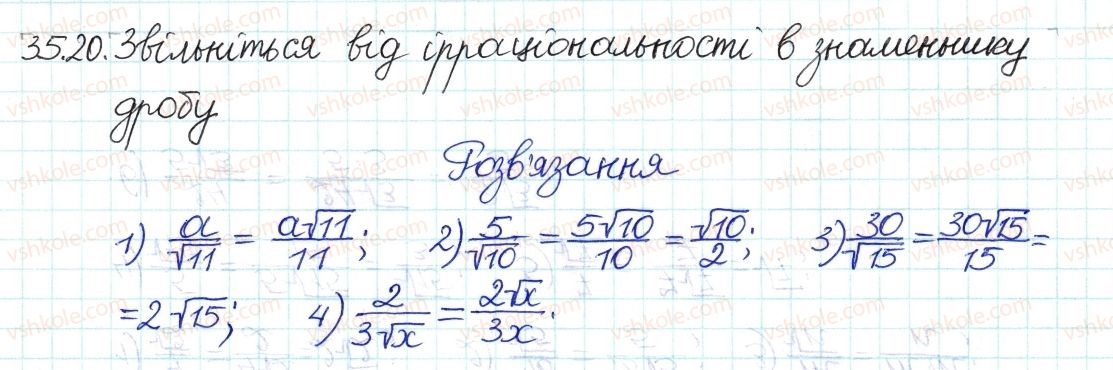 35.20. Звільніться від ірраціональності в знаменнику
дробу
Розв'язання
1) a/√11 = a√11/11; 2) 5/√10 = 5√10/10 = √10/2; 3) 30/√15 = 30√15/15 =
= 2√15; 4) 2/3√x = 2√x/3x.